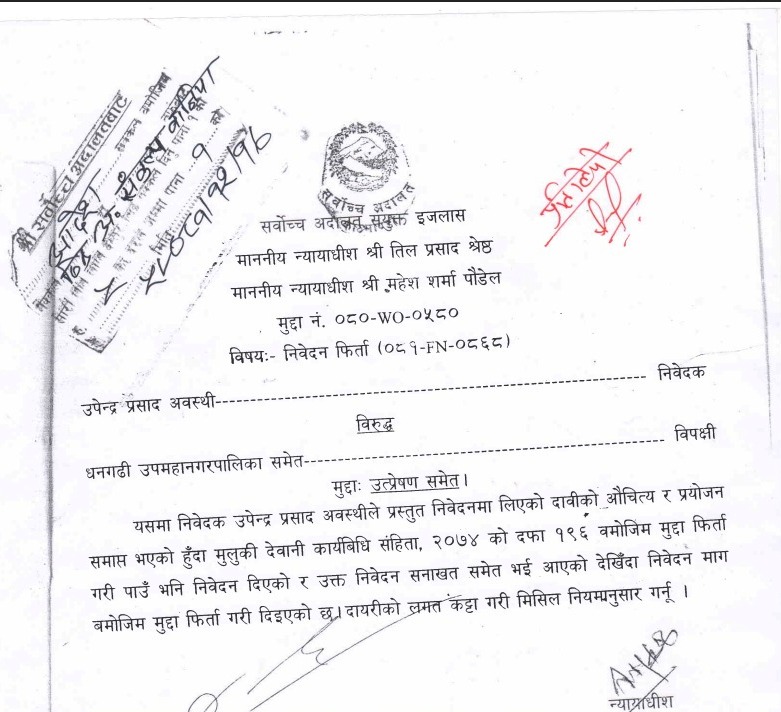 श्री सर्वोच्च अदालतबाट
आदेश
सर्वोच्च अदालत
प्रतिलिपी
सर्वोच्च अदालत संयुक्त इजलास
माननीय न्यायाधीश श्री तिल प्रसाद श्रेष्ठ
माननीय न्यायाधीश श्री महेश शर्मा पौडेल
मुद्दा नं. ०८०-WO-०५८०
विषयः- निवेदन फिर्ता (०८१-FN-०८६८)
उपेन्द्र प्रसाद अवस्थी------------------------------------------------------- निवेदक
विरुद्ध
धनगढी उपमहानगरपालिका समेत---------------------------------------------- विपक्षी
मुद्दाः उत्प्रेषण समेत।
यसमा निवेदक उपेन्द्र प्रसाद अवस्थीले प्रस्तुत निवेदनमा लिएको दावीको औचित्य र प्रयोजन
समाप्त भएको हुँदा मुलुकी देवानी कार्यबिधि संहिता, २०७४ को दफा १९६ वमोजिम मुद्दा फिर्ता
गरी पाउँ भनि निवेदन दिएको र उक्त निवेदन सनाखत समेत भई आएको देखिँदा निवेदन माग
वमोजिम मुद्दा फिर्ता गरी दिइएको छ। दायरीको लगत कट्टा गरी मिसिल नियमानुसार गर्नू ।
न्यायाधीश